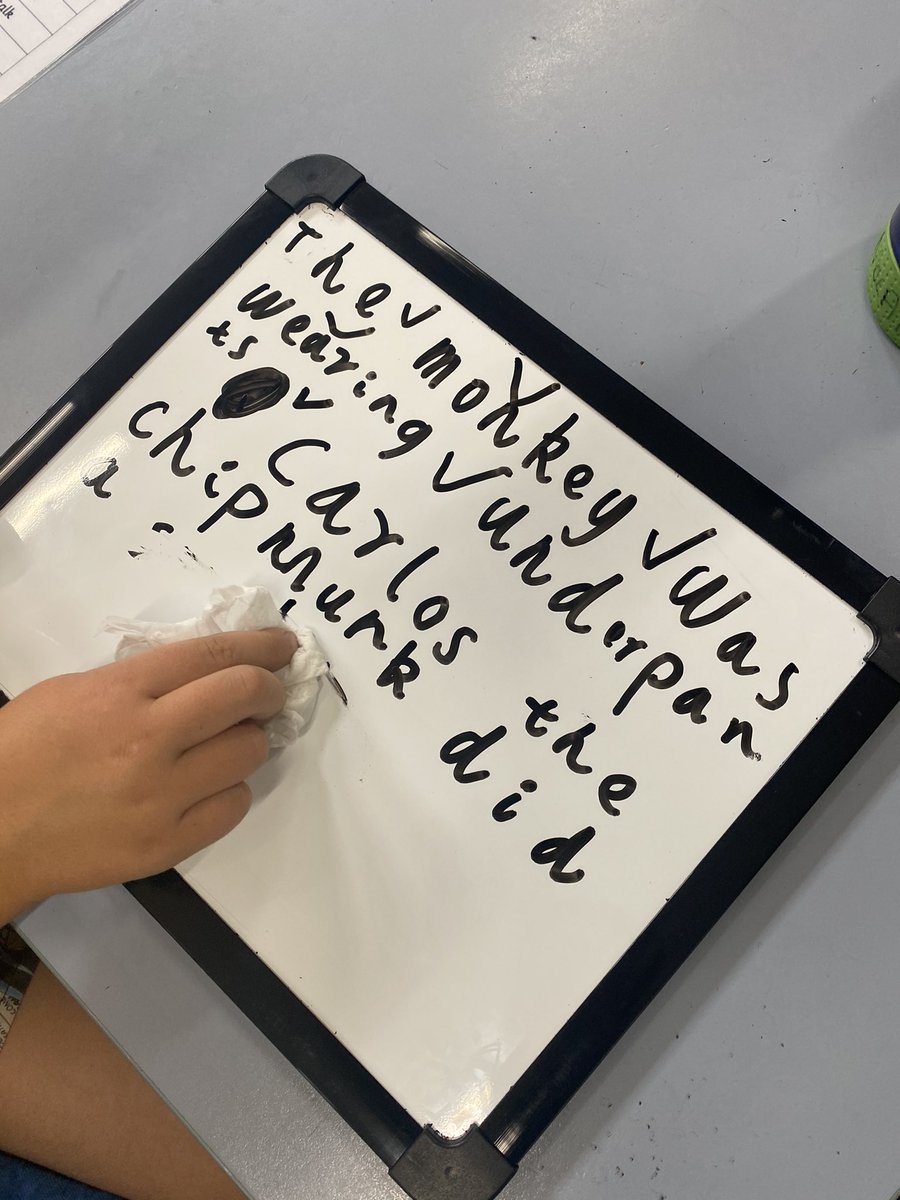 alk
The monkey was
wearing underpan
ts Carlos the
chipmunk did
a